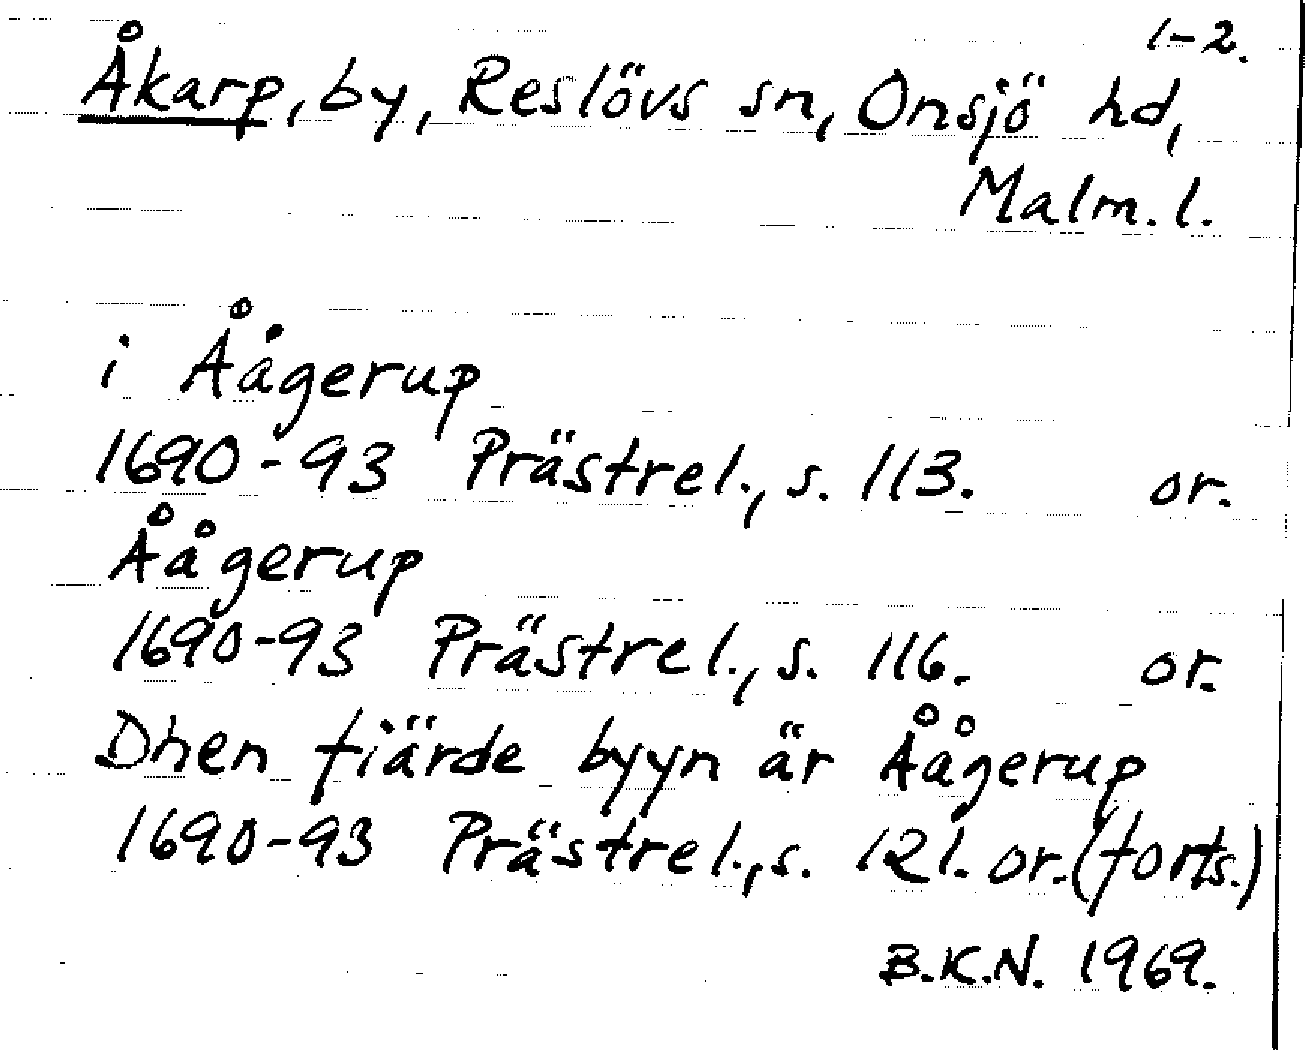 1-2.
Åkarp, by, Reslövs sn, Onsjö hd,
Malm. l.
i Åågerup
1690-93 Prästrel., s. 113. or.
Åågerup
1690-93 Prästrel., s. 116. or.
Dhen fiärde byyn är Åågerup
1690-93 Prästrel., s. 121. or. (forts.)
B.K.N. 1969.